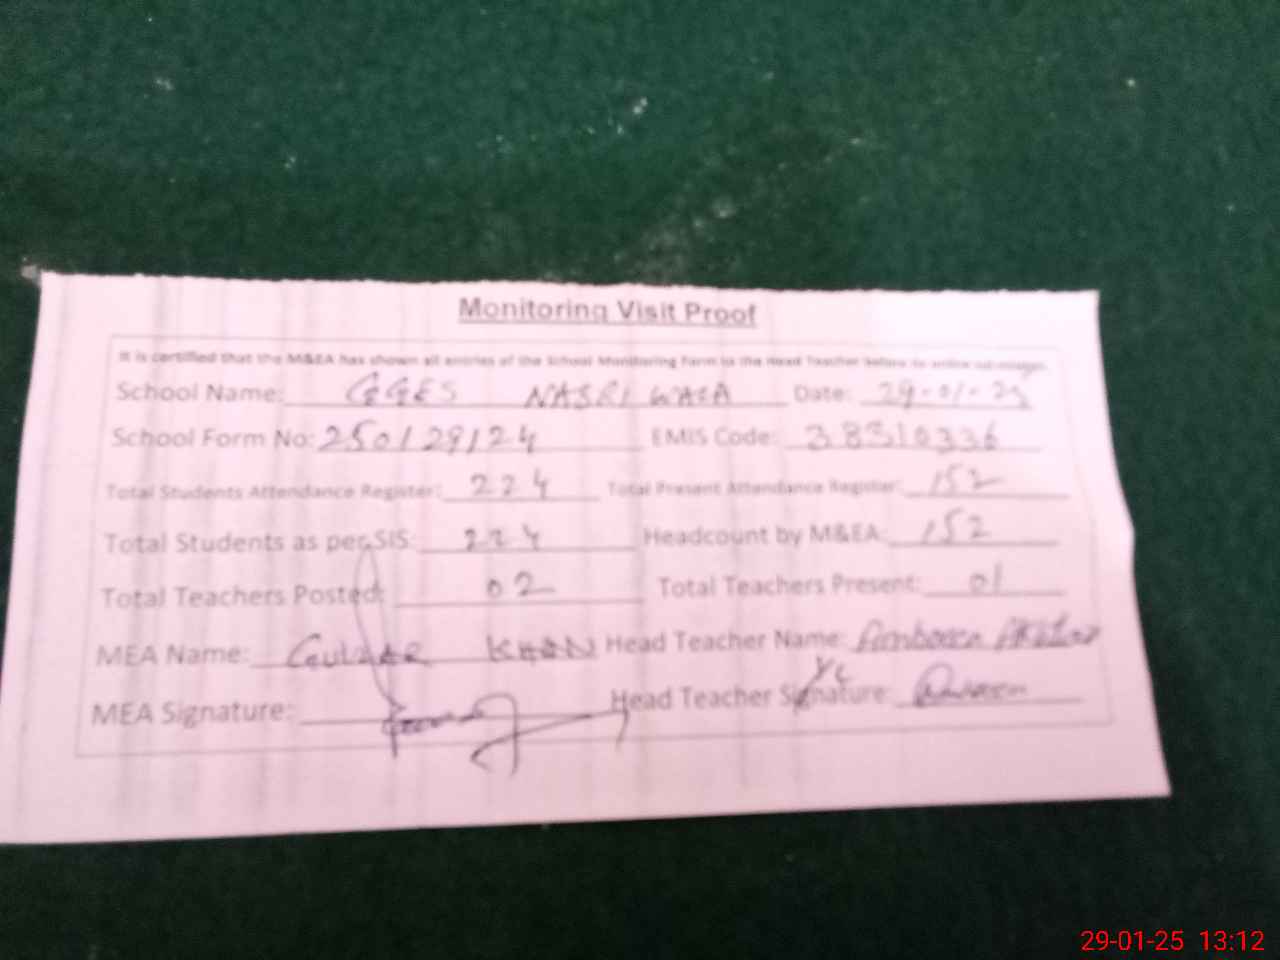 Monitoring Visit Proof
It is certified that the M&EA has shown all entries of the School Monitoring Form to the Head Teacher before its online
School Name: GGES NASRI WALA Date: 29-01-25
School Form No: 250129124 EMIS Code: 38310336
Total Students Attendance Register: 224 Total Present Attendance Register: 152
Total Students as per SIS: 224 Headcount by M&EA: 152
Total Teachers Posted: 02 Total Teachers Present: 01
MEA Name: GULZAR KHAN Head Teacher Name:
MEA Signature: Head Teacher Signature:
29-01-25 13:12